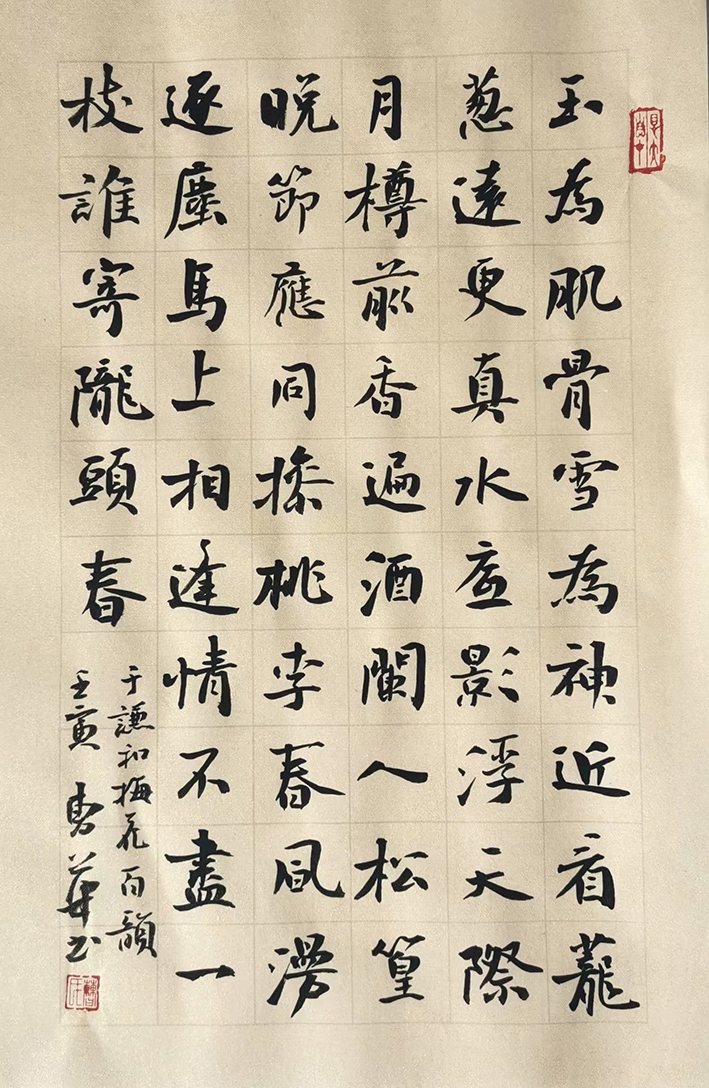 玉為肌骨雪為神近看蘢
葱遠更真水底影浮天際
月樽前香遍酒闌人松篁
晚節應同操桃李春風漫
逐塵馬上相逢情不盡一
枝誰寄隴頭春
于謙和梅花百韻
壬寅華书